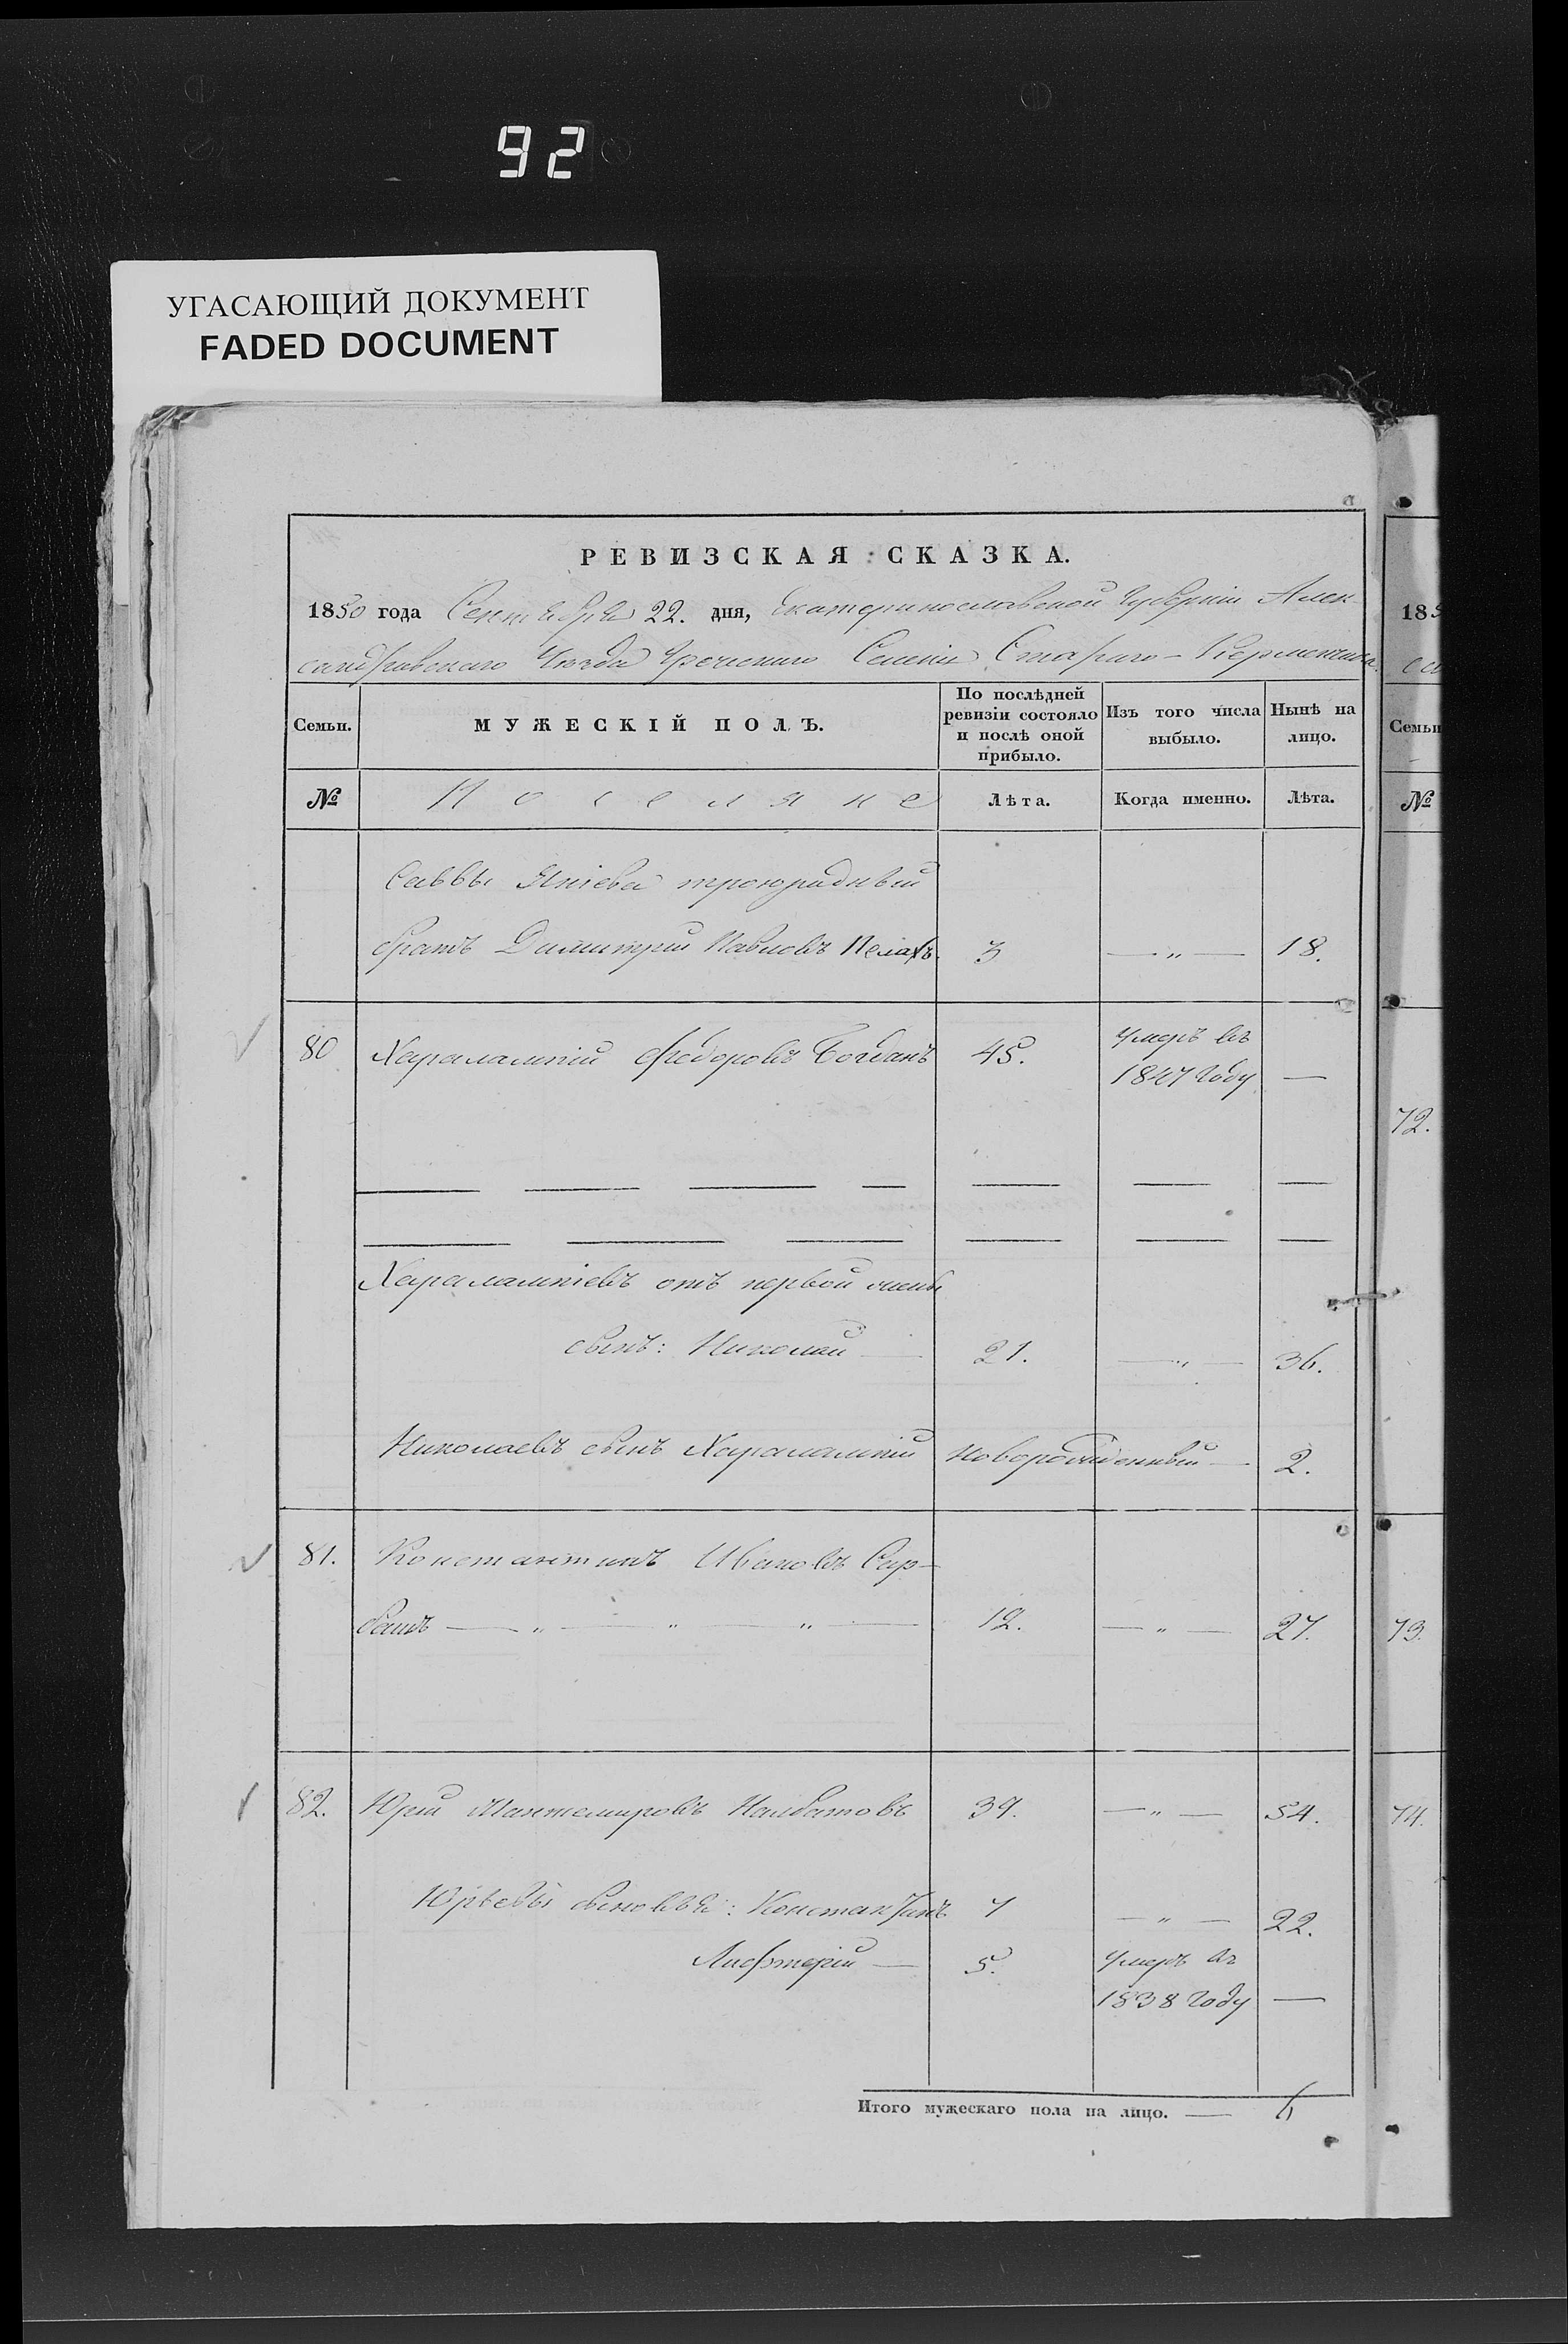 92
УГАСАЮЩИЙ ДОКУМЕНТ
FADED DOCUMENT
РЕВИЗСКАЯ СКАЗКА.
1850 года Сентября 22. дня, Екатеринославской Губерніи Алек-
сандровскаго Уѣзда Греческаго Селенія Стараго-Керменчика.
Семьи.
МУЖЕСКІЙ ПОЛЪ.
По послѣдней ревизіи состояло и послѣ оной прибыло.
Изъ того числа выбыло.
Нынѣ на лицо.
№ Поселяне Лѣта. Когда именно. Лѣта.
Саввы Яніева троюридный
братъ Димитрій Павловъ Пелахъ 3 — „ — 18.
80 Харалампій Федоровъ Богданъ 45. умеръ въ
1847 году —
Харалампіевъ отъ первой жены
сынъ: Николай — 21. — „ — 36.
Николаевъ сынъ Харалампій Новорожденный — 2.
81. Константинъ Ивановъ Сар-
башъ — „ — „ — „ — 12. — „ — 27.
82. Юрій Мантемировъ Налбатовъ 39. — „ — 54.
Юрьевы сыновья: Константинъ 7 — „ — 22.
Лифтерій — 5. умеръ въ
1838 году —
Итого мужескаго пола на лицо. — 6
185
Семьи
№
72.
73.
74.